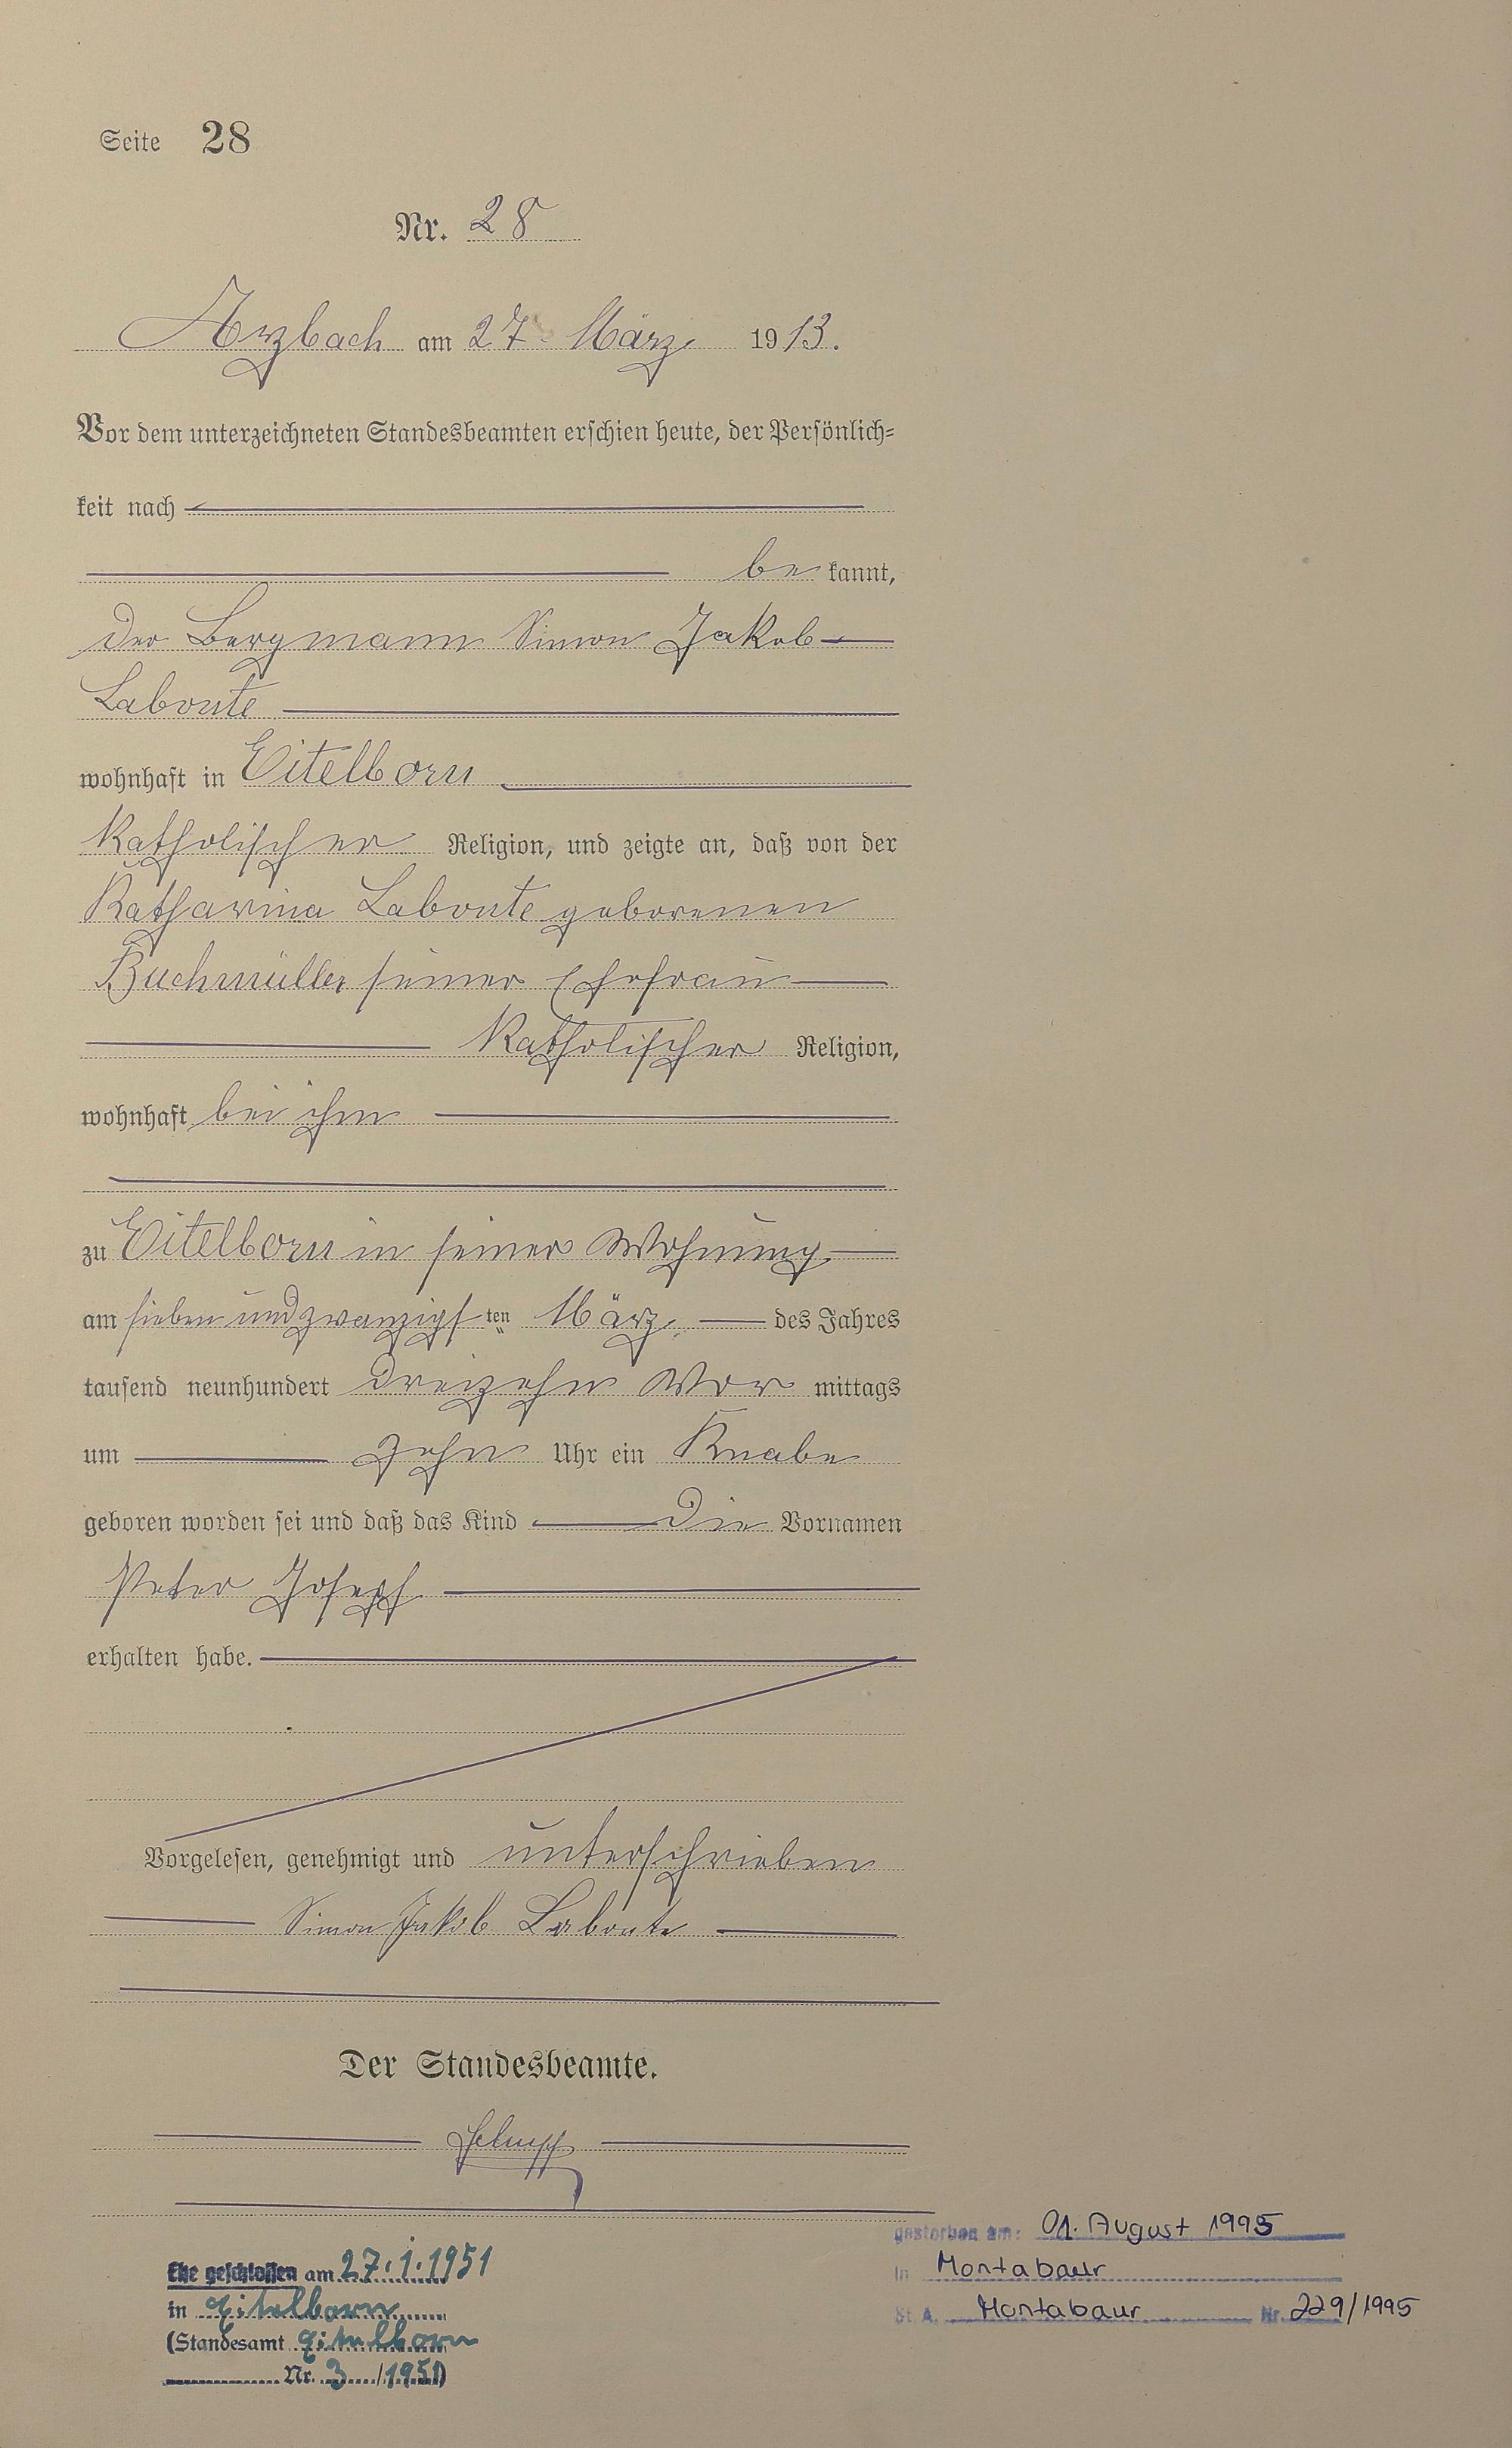 Seite 28
Nr. 28
Arzbach am 27. März 1913.
Vor dem unterzeichneten Standesbeamten erschien heute, der Persönlich-
keit nach
be kannt,
der Bergmann Simon Jakob
Labonte
wohnhaft in Eitelborn
katholischer Religion, und zeigte an, daß von der
Katharina Labonte geborenen
Buchmüller seiner Ehefrau
katholischer Religion,
wohnhaft bei ihm
zu Eitelborn in seiner Wohnung
am siebenundzwanzigsten März des Jahres
tausend neunhundert dreizehn Vor mittags
um zehn Uhr ein Knabe
geboren worden sei und daß das Kind die Vornamen
Peter Joseph
erhalten habe.
Vorgelesen, genehmigt und unterschrieben
Simon Jakob Labonte
Der Standesbeamte.
Ehe geschlossen am 27.1.1951
in Eitelborn
(Standesamt Eitelborn
Nr. 3/1951)
gestorben am: 01. August 1995
in Montabaur
St. A. Montabaur Nr. 229/1995